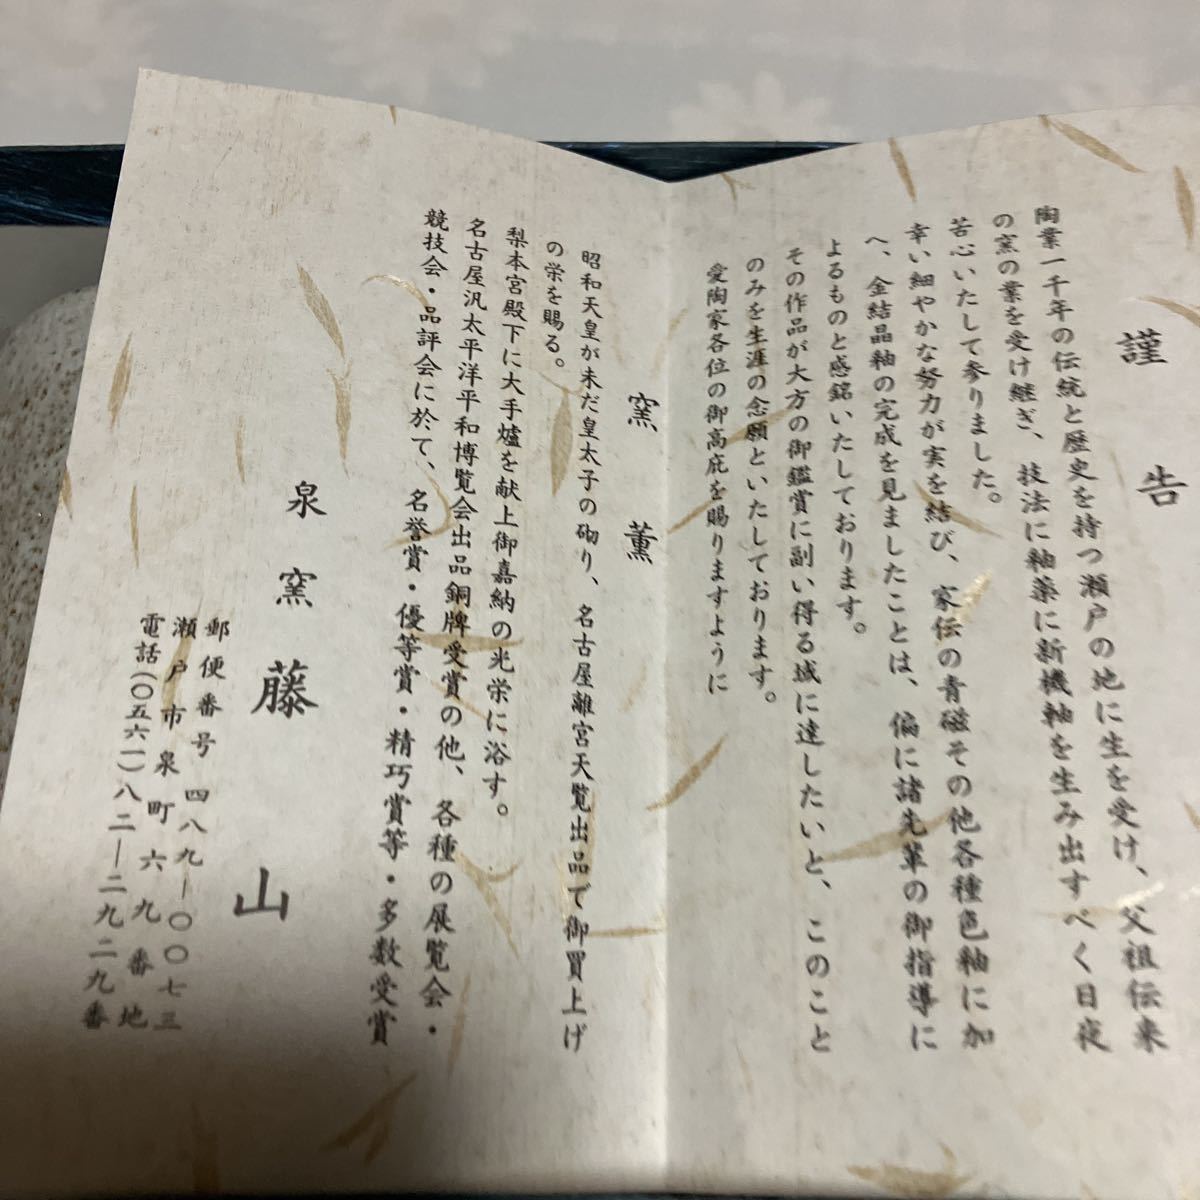 謹告
陶業一千年の伝統と歴史を持つ瀬戸の地に生を受け、父祖伝来
の窯の業を受け継ぎ、技法に釉薬に新機軸を生み出すべく日夜
苦心いたして参りました。
幸い細やかな努力が実を結び、家伝の青磁その他各種色釉に加
へ、金結晶釉の完成を見ましたことは、偏に諸先輩の御指導に
よるものと感銘いたしております。
その作品が大方の御鑑賞に副い得る域に達したいと、このこと
のみを生涯の念願といたしております。
愛陶家各位の御高庇を賜りますように
窯薫
昭和天皇が未だ皇太子の砌り、名古屋離宮天覧出品で御買上げ
の栄を賜る。
梨本宮殿下に大手爐を献上御嘉納の光栄に浴す。
名古屋汎太平洋平和博覧会出品銅牌受賞の他、各種の展覧会・
競技会・品評会に於て、名誉賞・優等賞・精巧賞等・多数受賞
泉窯藤山
郵便番号四八九―〇〇七三
瀬戸市泉町六九番地
電話(〇五六一)八二―二九二九番